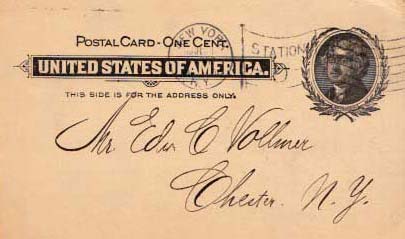 NEW YORK
N.Y.
STATION
POSTAL CARD - ONE CENT.
UNITED STATES OF AMERICA.
THIS SIDE IS FOR THE ADDRESS ONLY.
Mr. Edw C Vollmer
Chester. N.Y.